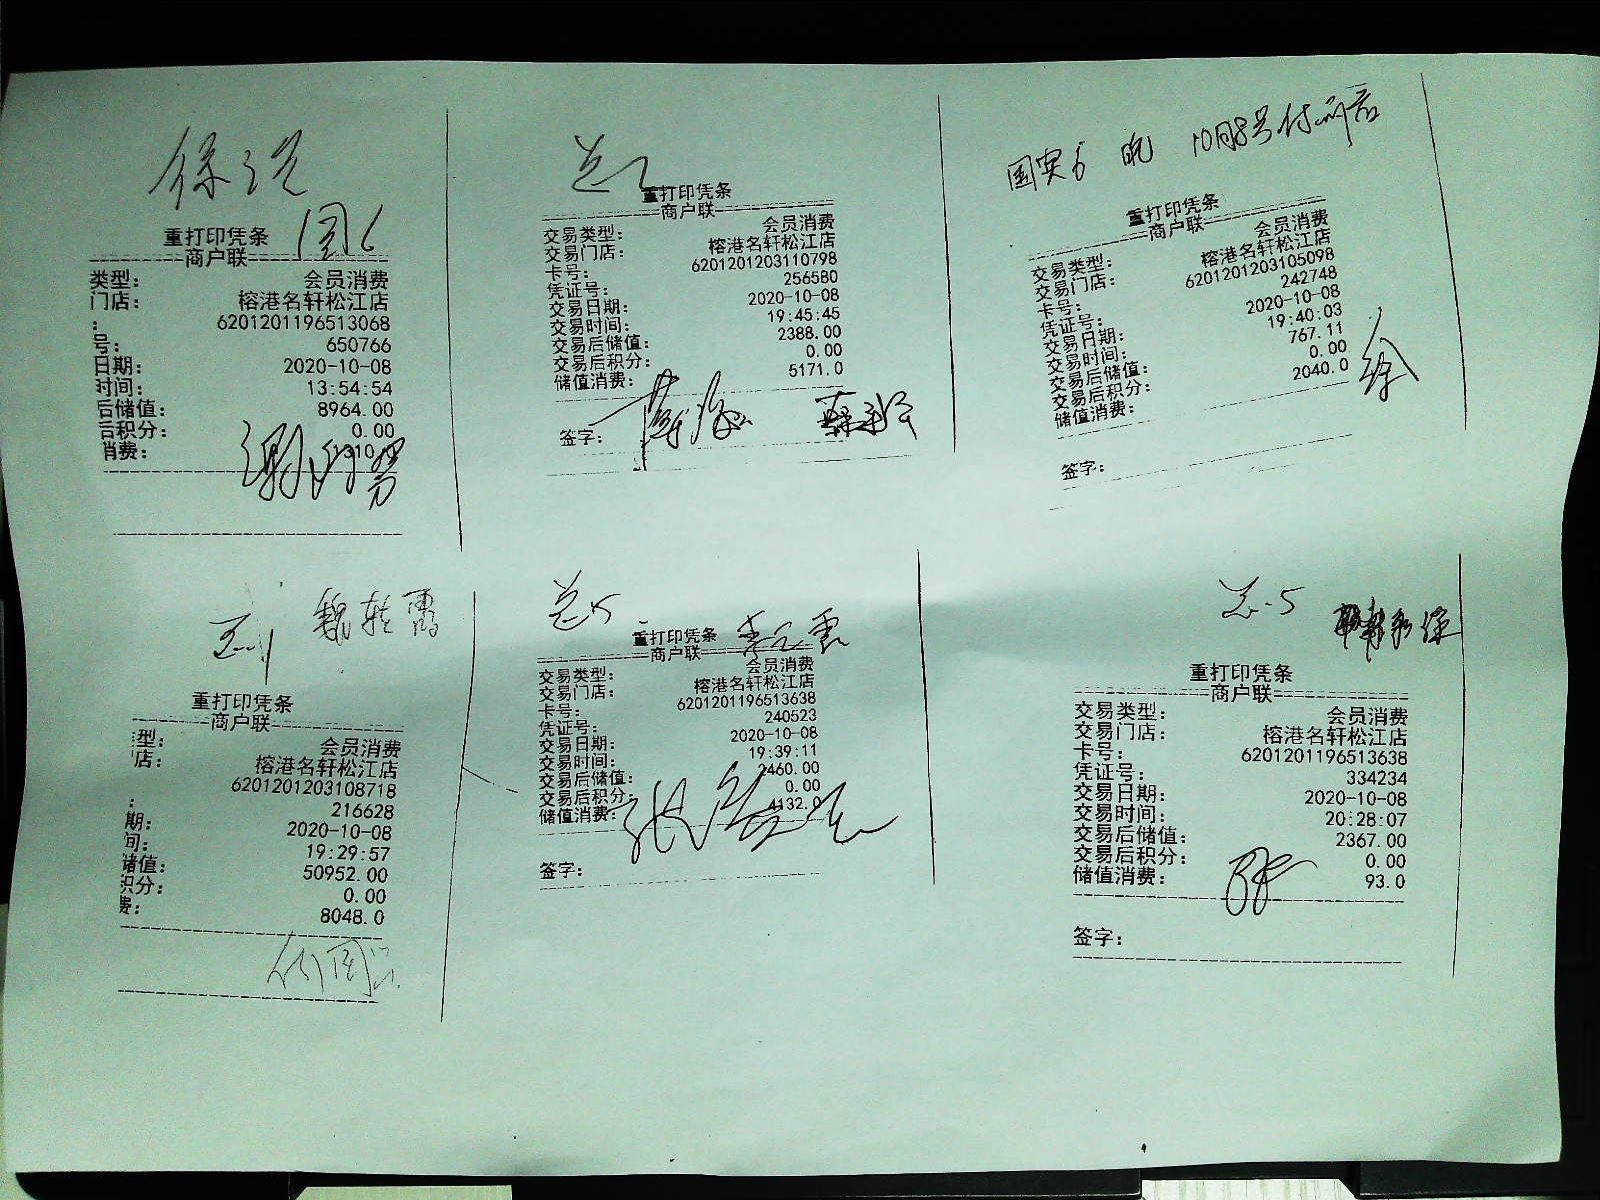 国6
重打印凭条
商户联
类型： 会员消费
门店： 榕港名轩松江店
： 6201201196513068
号： 650766
日期： 2020-10-08
时间： 13:54:54
后储值： 8964.00
后积分： 0.00
消费：
重打印凭条
商户联
交易类型： 会员消费
交易门店： 榕港名轩松江店
卡号： 6201201203110798
凭证号： 256580
交易日期： 2020-10-08
交易时间： 19:45:45
交易后储值： 2388.00
交易后积分： 0.00
储值消费： 5171.0
签字：
国宾6 晚 10月8号付
重打印凭条
商户联
交易类型： 会员消费
交易门店： 榕港名轩松江店
卡号： 6201201203105098
凭证号： 242748
交易日期： 2020-10-08
交易时间： 19:40:03
交易后储值： 767.11
交易后积分： 0.00
储值消费： 2040.0
徐
签字：
魏轶霞
重打印凭条
商户联
型： 会员消费
店： 榕港名轩松江店
： 6201201203108718
216628
期： 2020-10-08
间： 19:29:57
储值： 50952.00
积分： 0.00
费： 8048.0
总5
重打印凭条
商户联
交易类型： 会员消费
交易门店： 榕港名轩松江店
卡号： 6201201196513638
凭证号： 240523
交易日期： 2020-10-08
交易时间： 19:39:11
交易后储值： 2460.00
交易后积分： 0.00
储值消费： 4132.0
签字：
总-5
重打印凭条
商户联
交易类型： 会员消费
交易门店： 榕港名轩松江店
卡号： 6201201196513638
凭证号： 334234
交易日期： 2020-10-08
交易时间： 20:28:07
交易后储值： 2367.00
交易后积分： 0.00
储值消费： 93.0
签字：